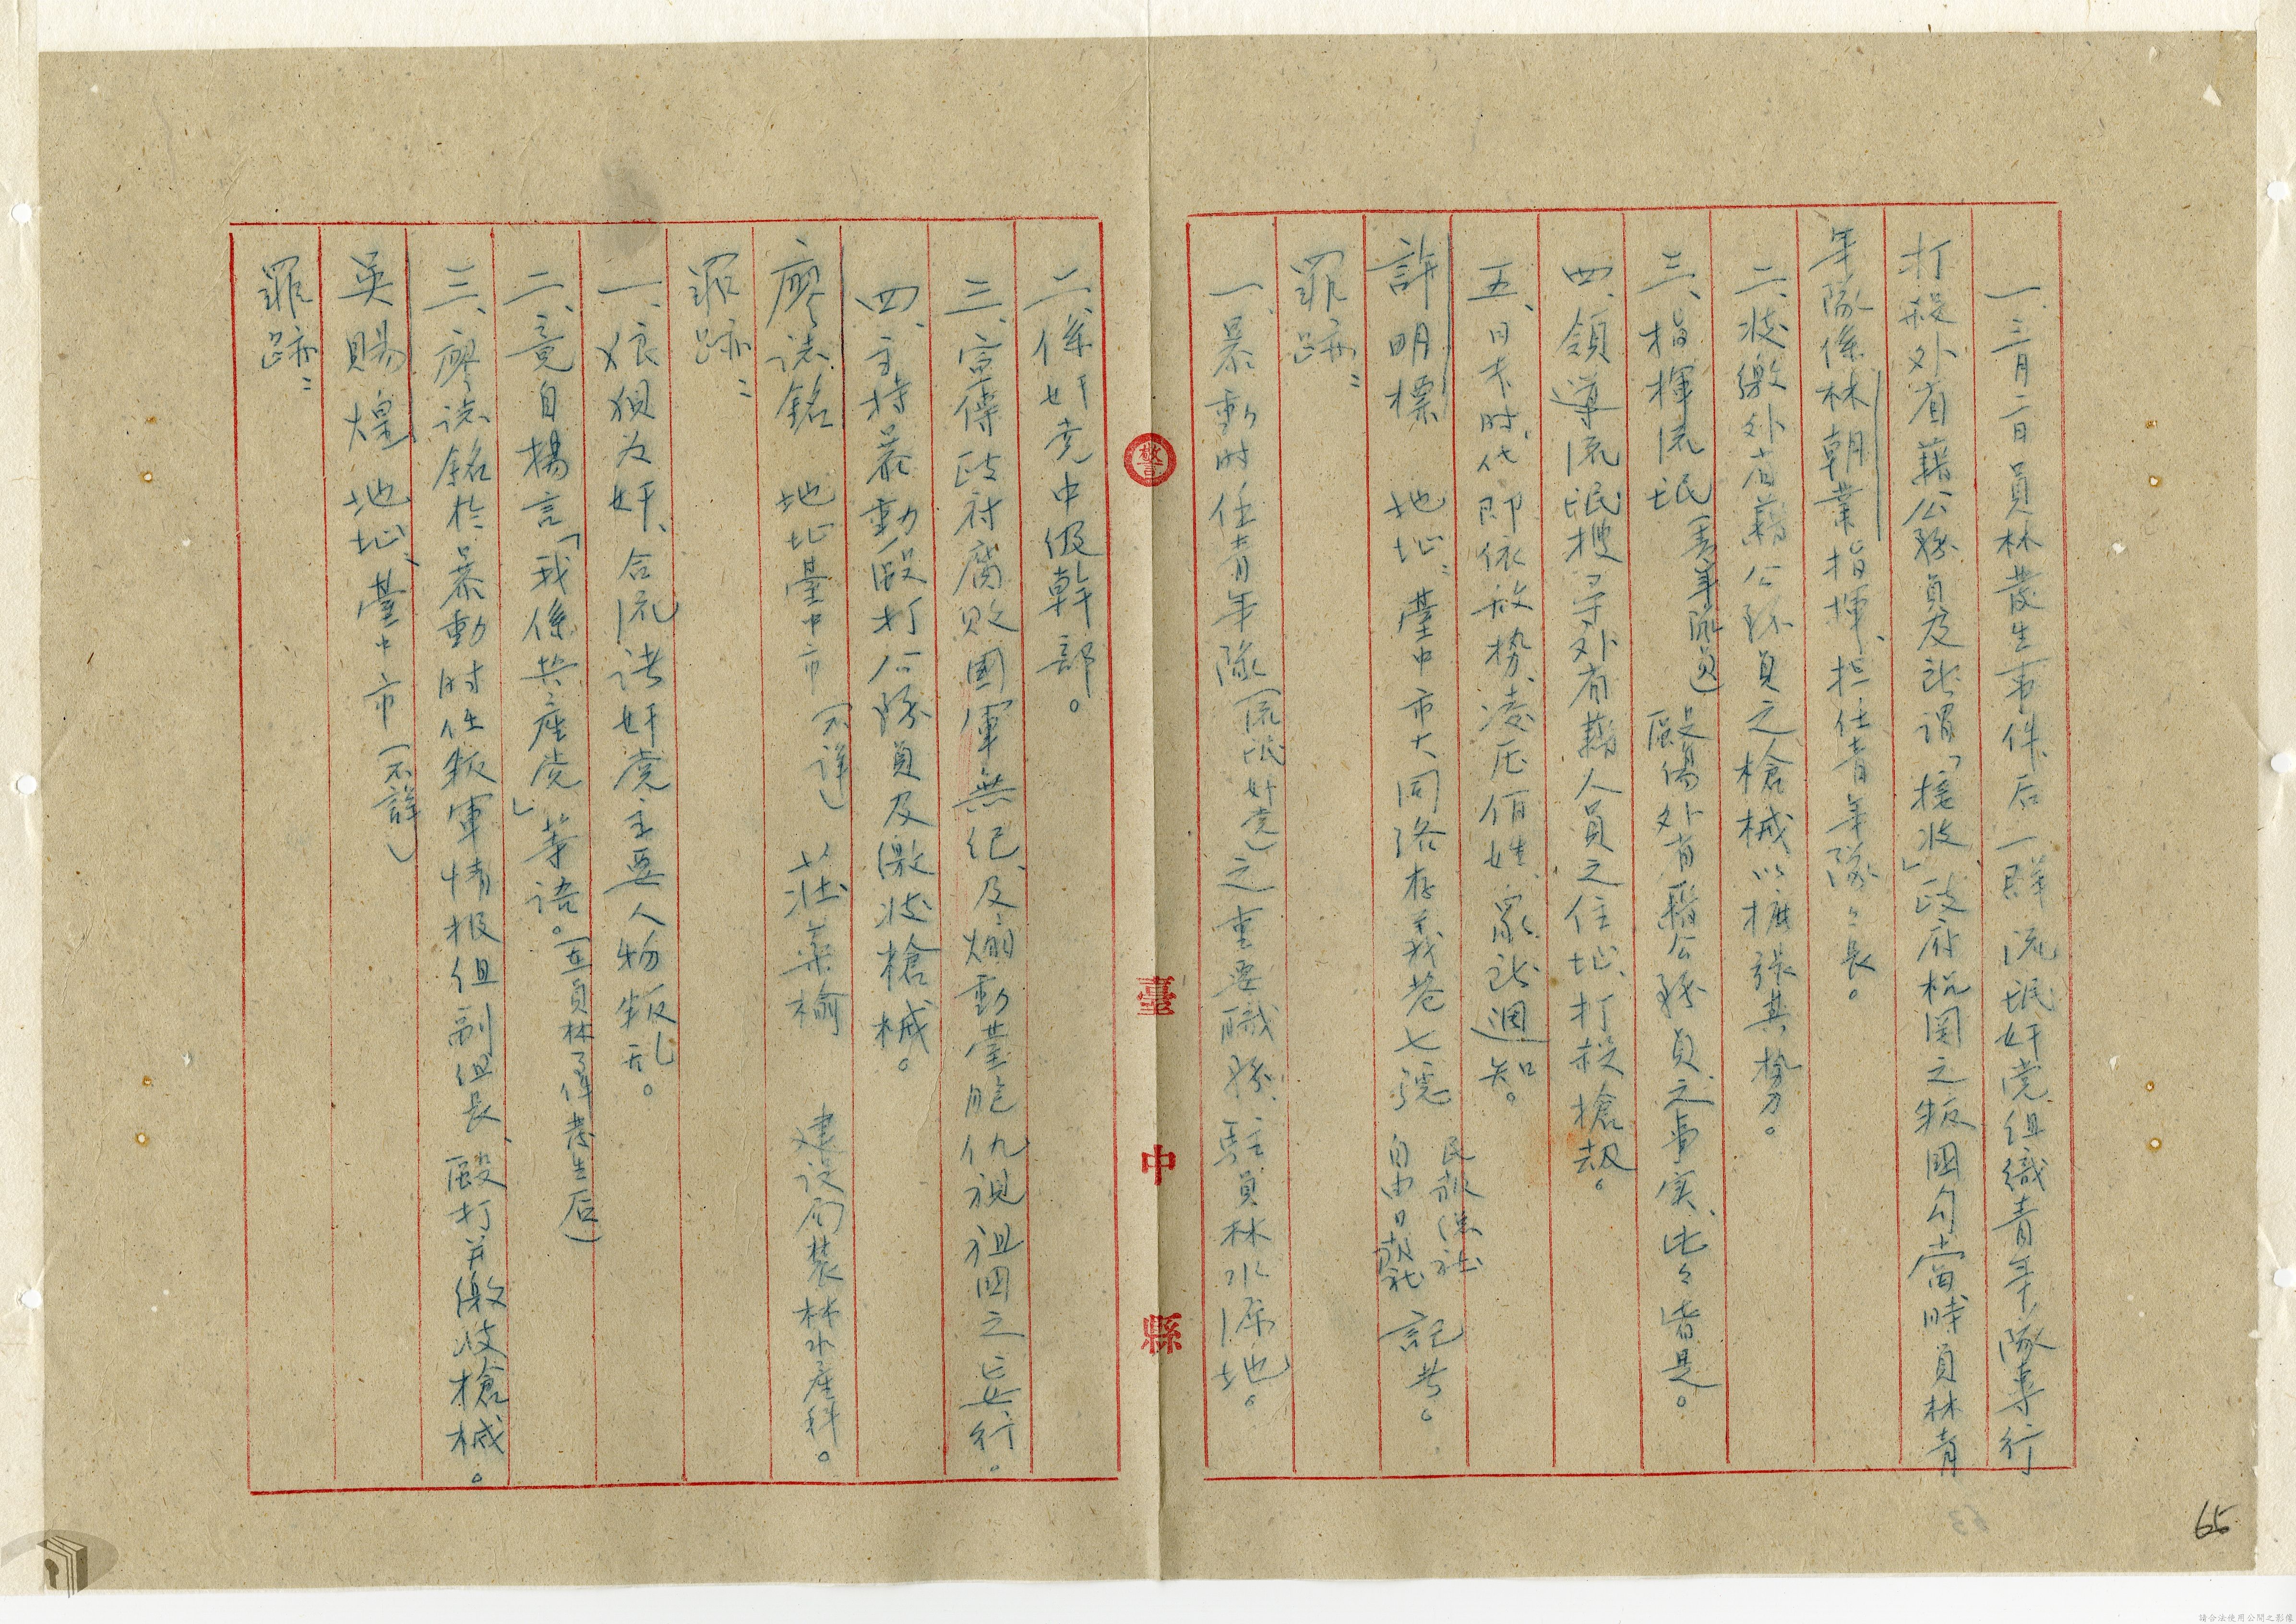 一、三月二日員林發生事件后一群流氓奸党組織青年隊專行
打殺外省籍公務員及所謂「接收」政府机関之叛國勾当當時員林青
年隊係林朝業指揮、担任青年隊々長。
二、收繳外省籍公務員之槍械以擴張其勢力。
三、指揮流氓(青年隊員)毆傷外省籍公務員之事实、比々皆是。
四、領導流氓搜尋外省籍人員之住址、打殺槍劫。
五、日本时代即依放勢、凌压佰姓、眾所週知。
許明標 地址：臺中市大同路存義巷七號 民報總社 自由日報社 記者。
罪跡：
一、暴動时任青年隊(流氓奸党)之重要職務、駐員林水源地。
警
臺中縣
二、係奸党中级幹部。
三、宣傳政府腐敗國軍無紀、及煽動臺胞仇視祖國之妄行。
四、主持暴動毆打公務員及繳收槍械。
廖誌銘 地址臺中市(不詳) 莊葉榆 建设局裝林水產科。
罪跡：
一、狼狽为奸、合流诸奸党主要人物叛乱。
二、竟自揚言「我係共產党」等語。(在員林事件發生后)
三、廖誌銘於暴動时任叛軍情报组副组長、毆打并繳收槍械。
吳賜煌 地址、臺中市(不詳)
罪跡：
65
63
請合法使用公開之影像